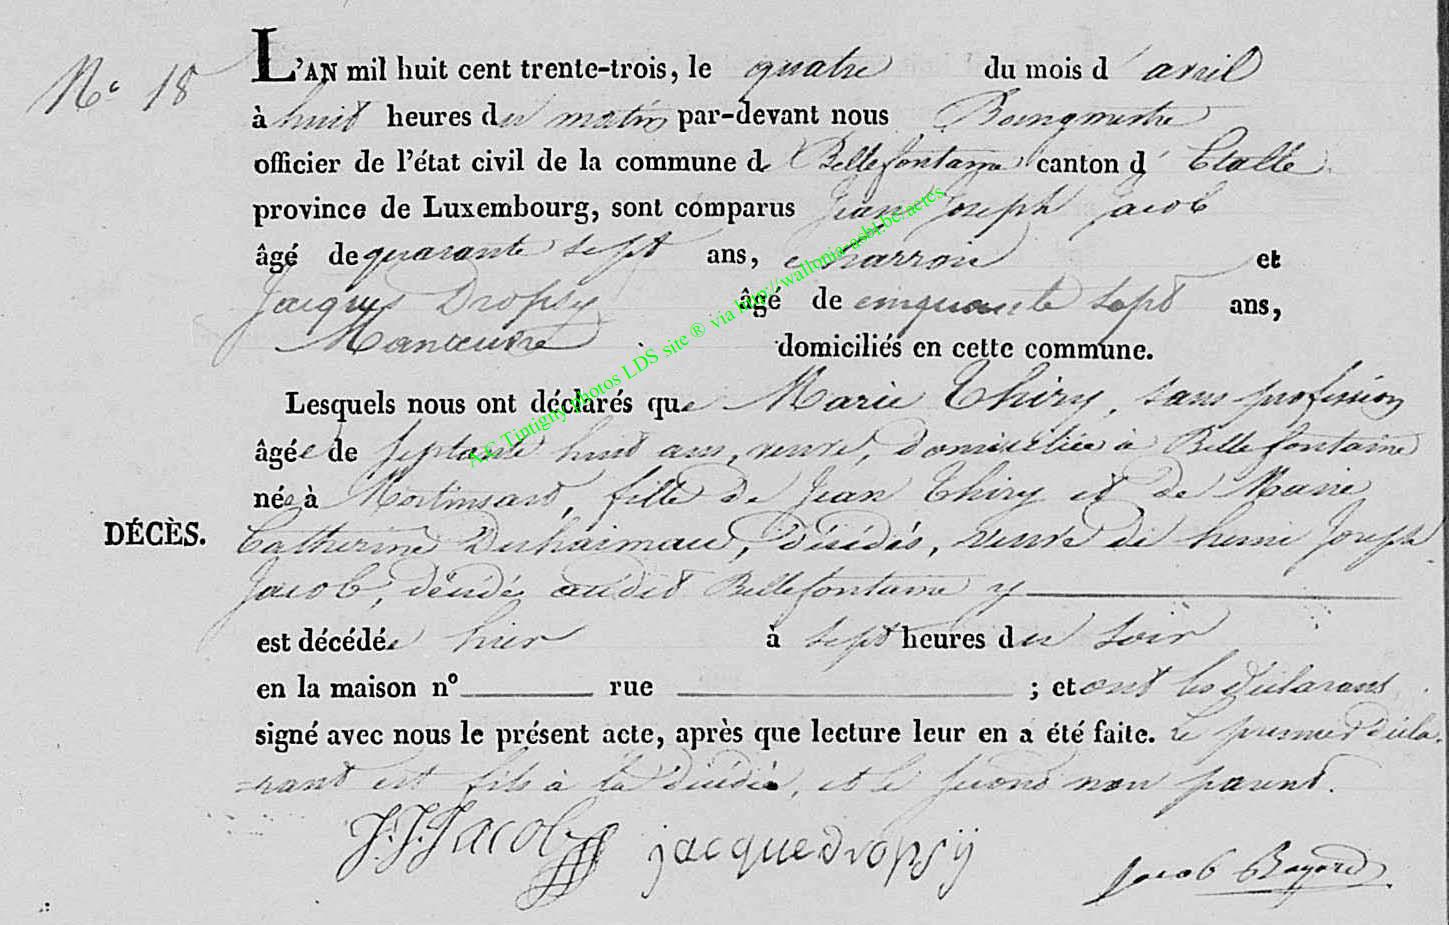 N° 18
L'AN mil huit cent trente-trois, le quatre du mois d'avril
à huit heures du matin par-devant nous Bourgmestre
officier de l'état civil de la commune de Bellefontaine canton d'Etalle
province de Luxembourg, sont comparus Jean Joseph Jacob
âgé de quarante sept ans, charron et
Jacques Dropsy âgé de cinquante sept ans,
Manœuvre domiciliés en cette commune.
Lesquels nous ont déclarés que Marie Thiry, sans profession
âgée de septante huit ans, veuve, domiciliée à Bellefontaine
née à Mortinsart, fille de Jean Thiry et de Marie
DÉCÈS.
Catherine décédés, veuve de henri Joseph
Jacob, décédé audit Bellefontaine y
est décédée hier à sept heures du soir
en la maison n° rue ; et ont les déclarants
signé avec nous le présent acte, après que lecture leur en a été faite. Le premier décla
=rant est fils à la décédée, et le second non parent.
J.J. Jacob jacque dropsÿ
Jacob Bayard
A.C Tintigny photos LDS site ® via http://wallonia-asbl.be/actes